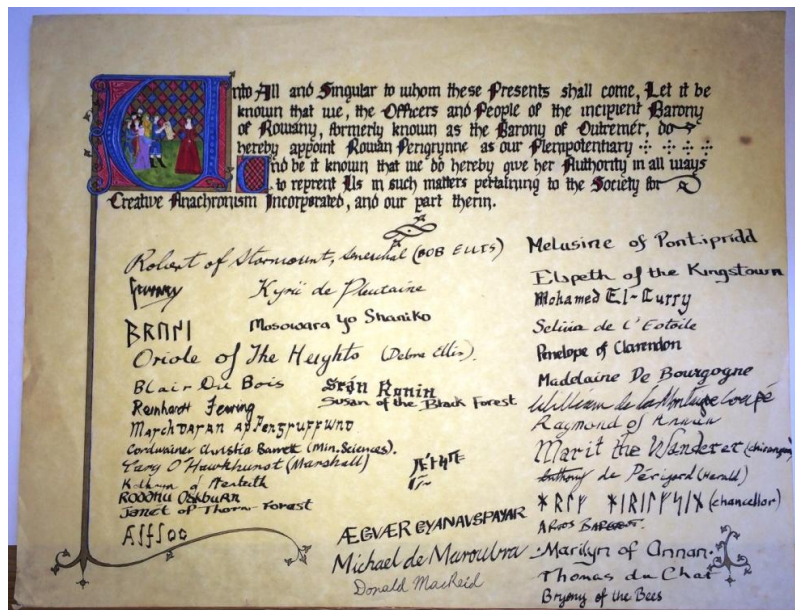 Unto All and Singular to whom these Presents shall come, Let it be
known that we, the Officers and People of the incipient Barony
of Rowany, formerly known as the Barony of Outremér, do
hereby appoint Rowan Perigrynne as our Plenipotentiary
And be it known that we do hereby give her Authority in all ways
to reprent Us in such matters pertaining to the Society for
Creative Anachronism Incorporated, and our part therin.
Robert of Stormount, Seneschal (BOB ELLIS)
Kyrii de
BRANI
Mosowara Yo Shaniko
Oriole of The Heights (Debra Ellis).
Blair Du Bois
Seán Ronin
Reinhardt
Susan of the Black Forest
Cordwainer Christia Barrett (Min. Sciences).
Gary O'Hawkhurst (Marshall)
Janet of Thorn Forest
ÆGVÆR
Michael de Maroubra
Donald MacReid
Melusine of Pontipridd
Elspeth of the Kingstown
Mohamed El-Curry
de L'Estoile
Penelope of Clarendon
Madelaine De Bourgogne
William de la
Raymond of Annan
Marit the Wanderer
Anthony de Périgord (Herald)
(chancellor)
Marilyn of Annan
Thomas du Chat
Bryony of the Bees